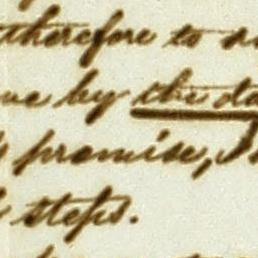 therefore to
by the da
promise, I
steps.